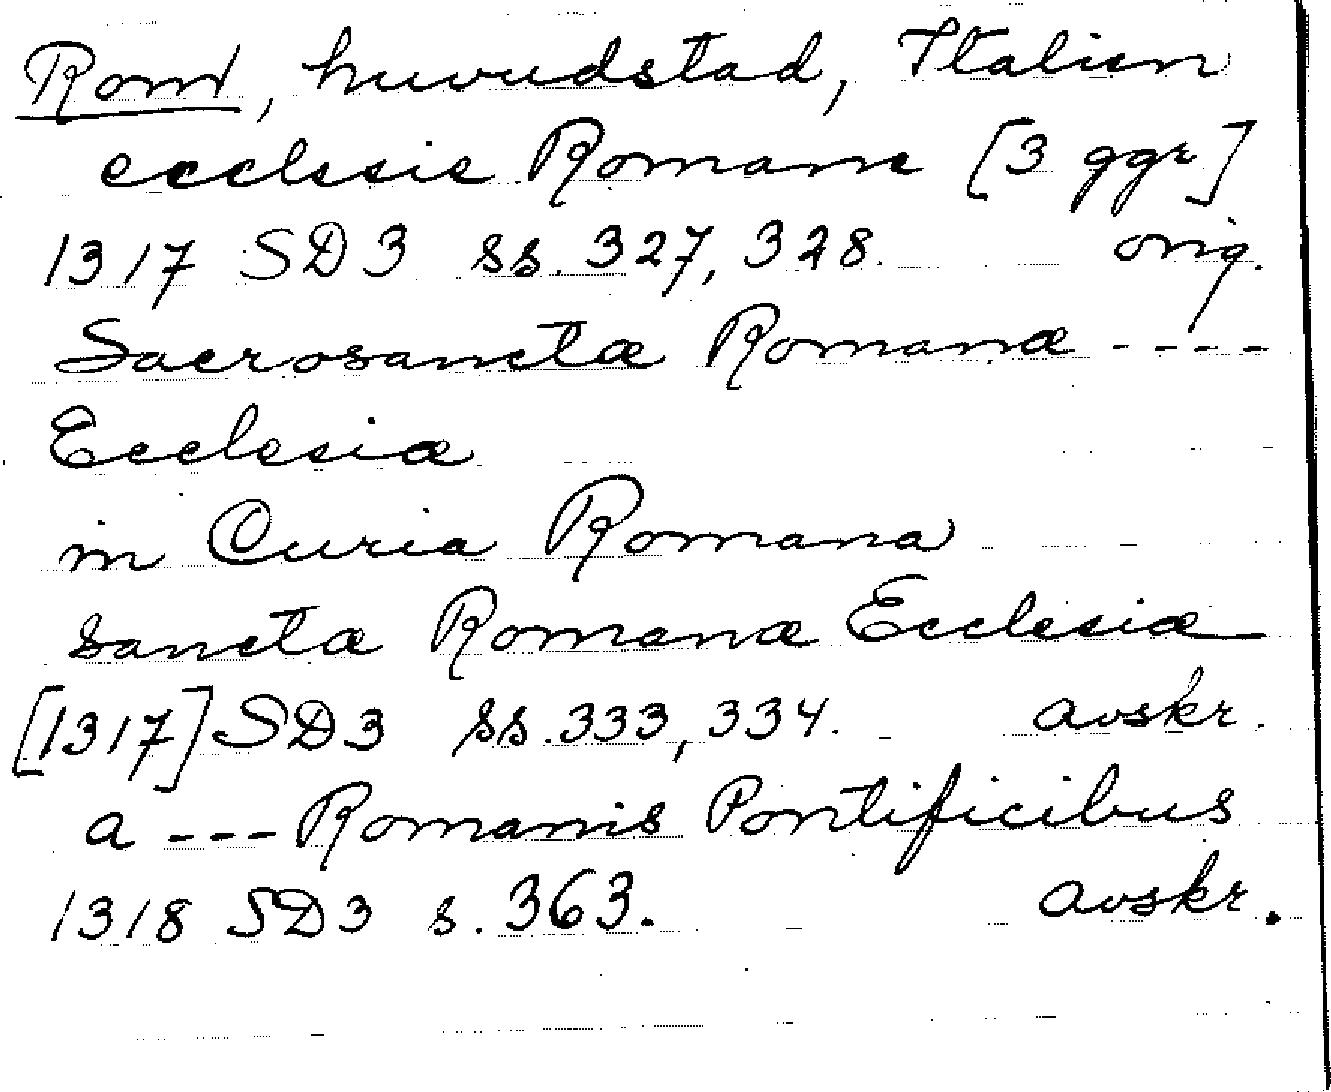 Rom, huvudstad, Italien
ecclesie Romane [3 ggr]
1317 SD3 ss. 327, 328. orig.
Sacrosanctæ Romanæ ----
Ecclesiæ
in Curia Romana
sanctæ Romanæ Ecclesiæ
[1317] SD3 ss. 333, 334. avskr.
a --- Romanis Pontificibus
1318 SD3 s. 363. avskr.